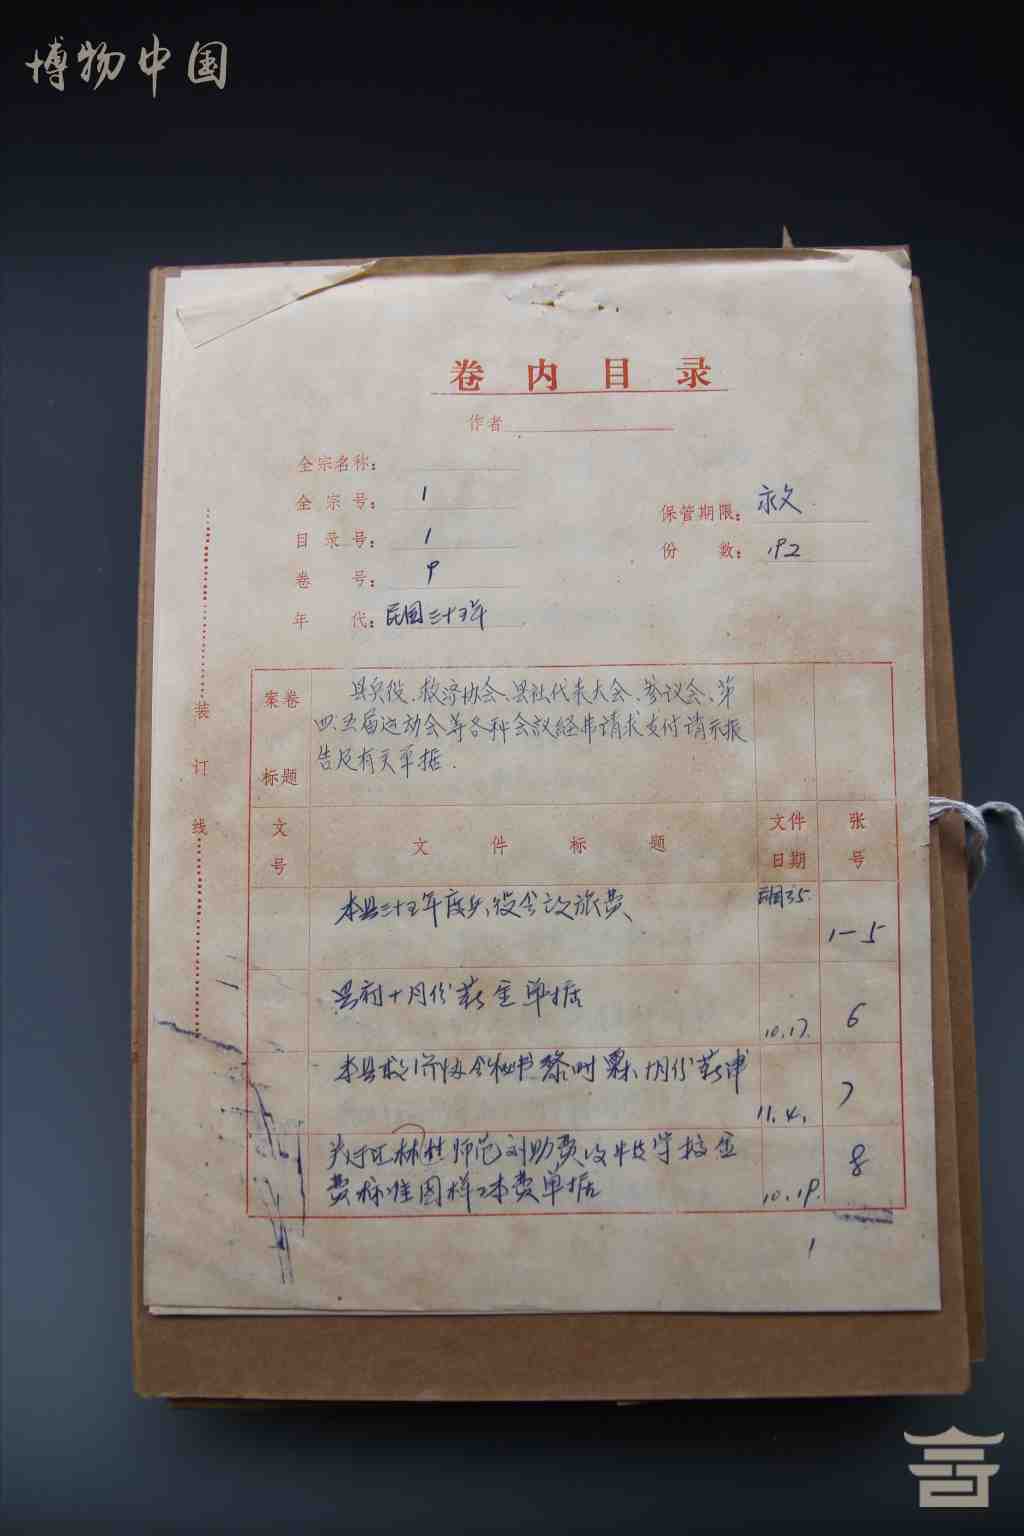 博物中国
卷内目录
作者
全宗名称：
全宗号： 1
保管期限： 永久
目录号： 1
份数： 192
卷号： 9
年代： 民国三十五年
案卷标题
县兵役、救济协会、县社代表大会、参议会、第
四、五届运动会等各种会议经费请求支付请示报
告及有关单据.
装订线
文号 文件标题 文件日期 张号
本县三十五年度兵役会议旅费 民国35. 1-5
县府十月份薪金单据 10.17. 6
本县救济协会秘书黎时 十月份薪津 11.4. 7
桂师范 助费 学校
费标准图样 本费单据 10.19. 8
1